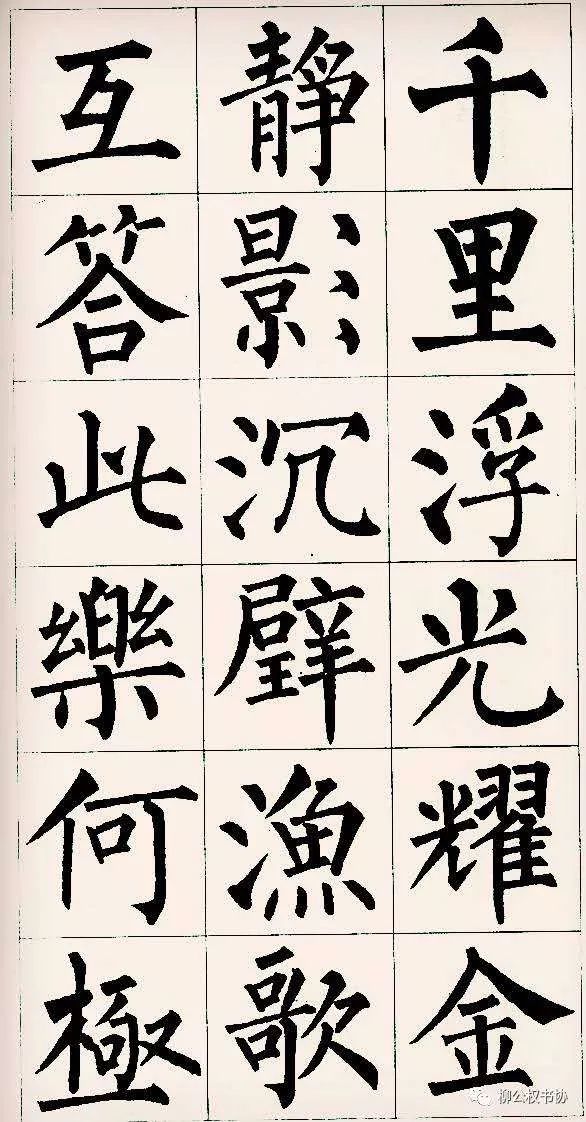 千里浮光耀金
静影沉璧漁歌
互答此樂何極
柳公权书协